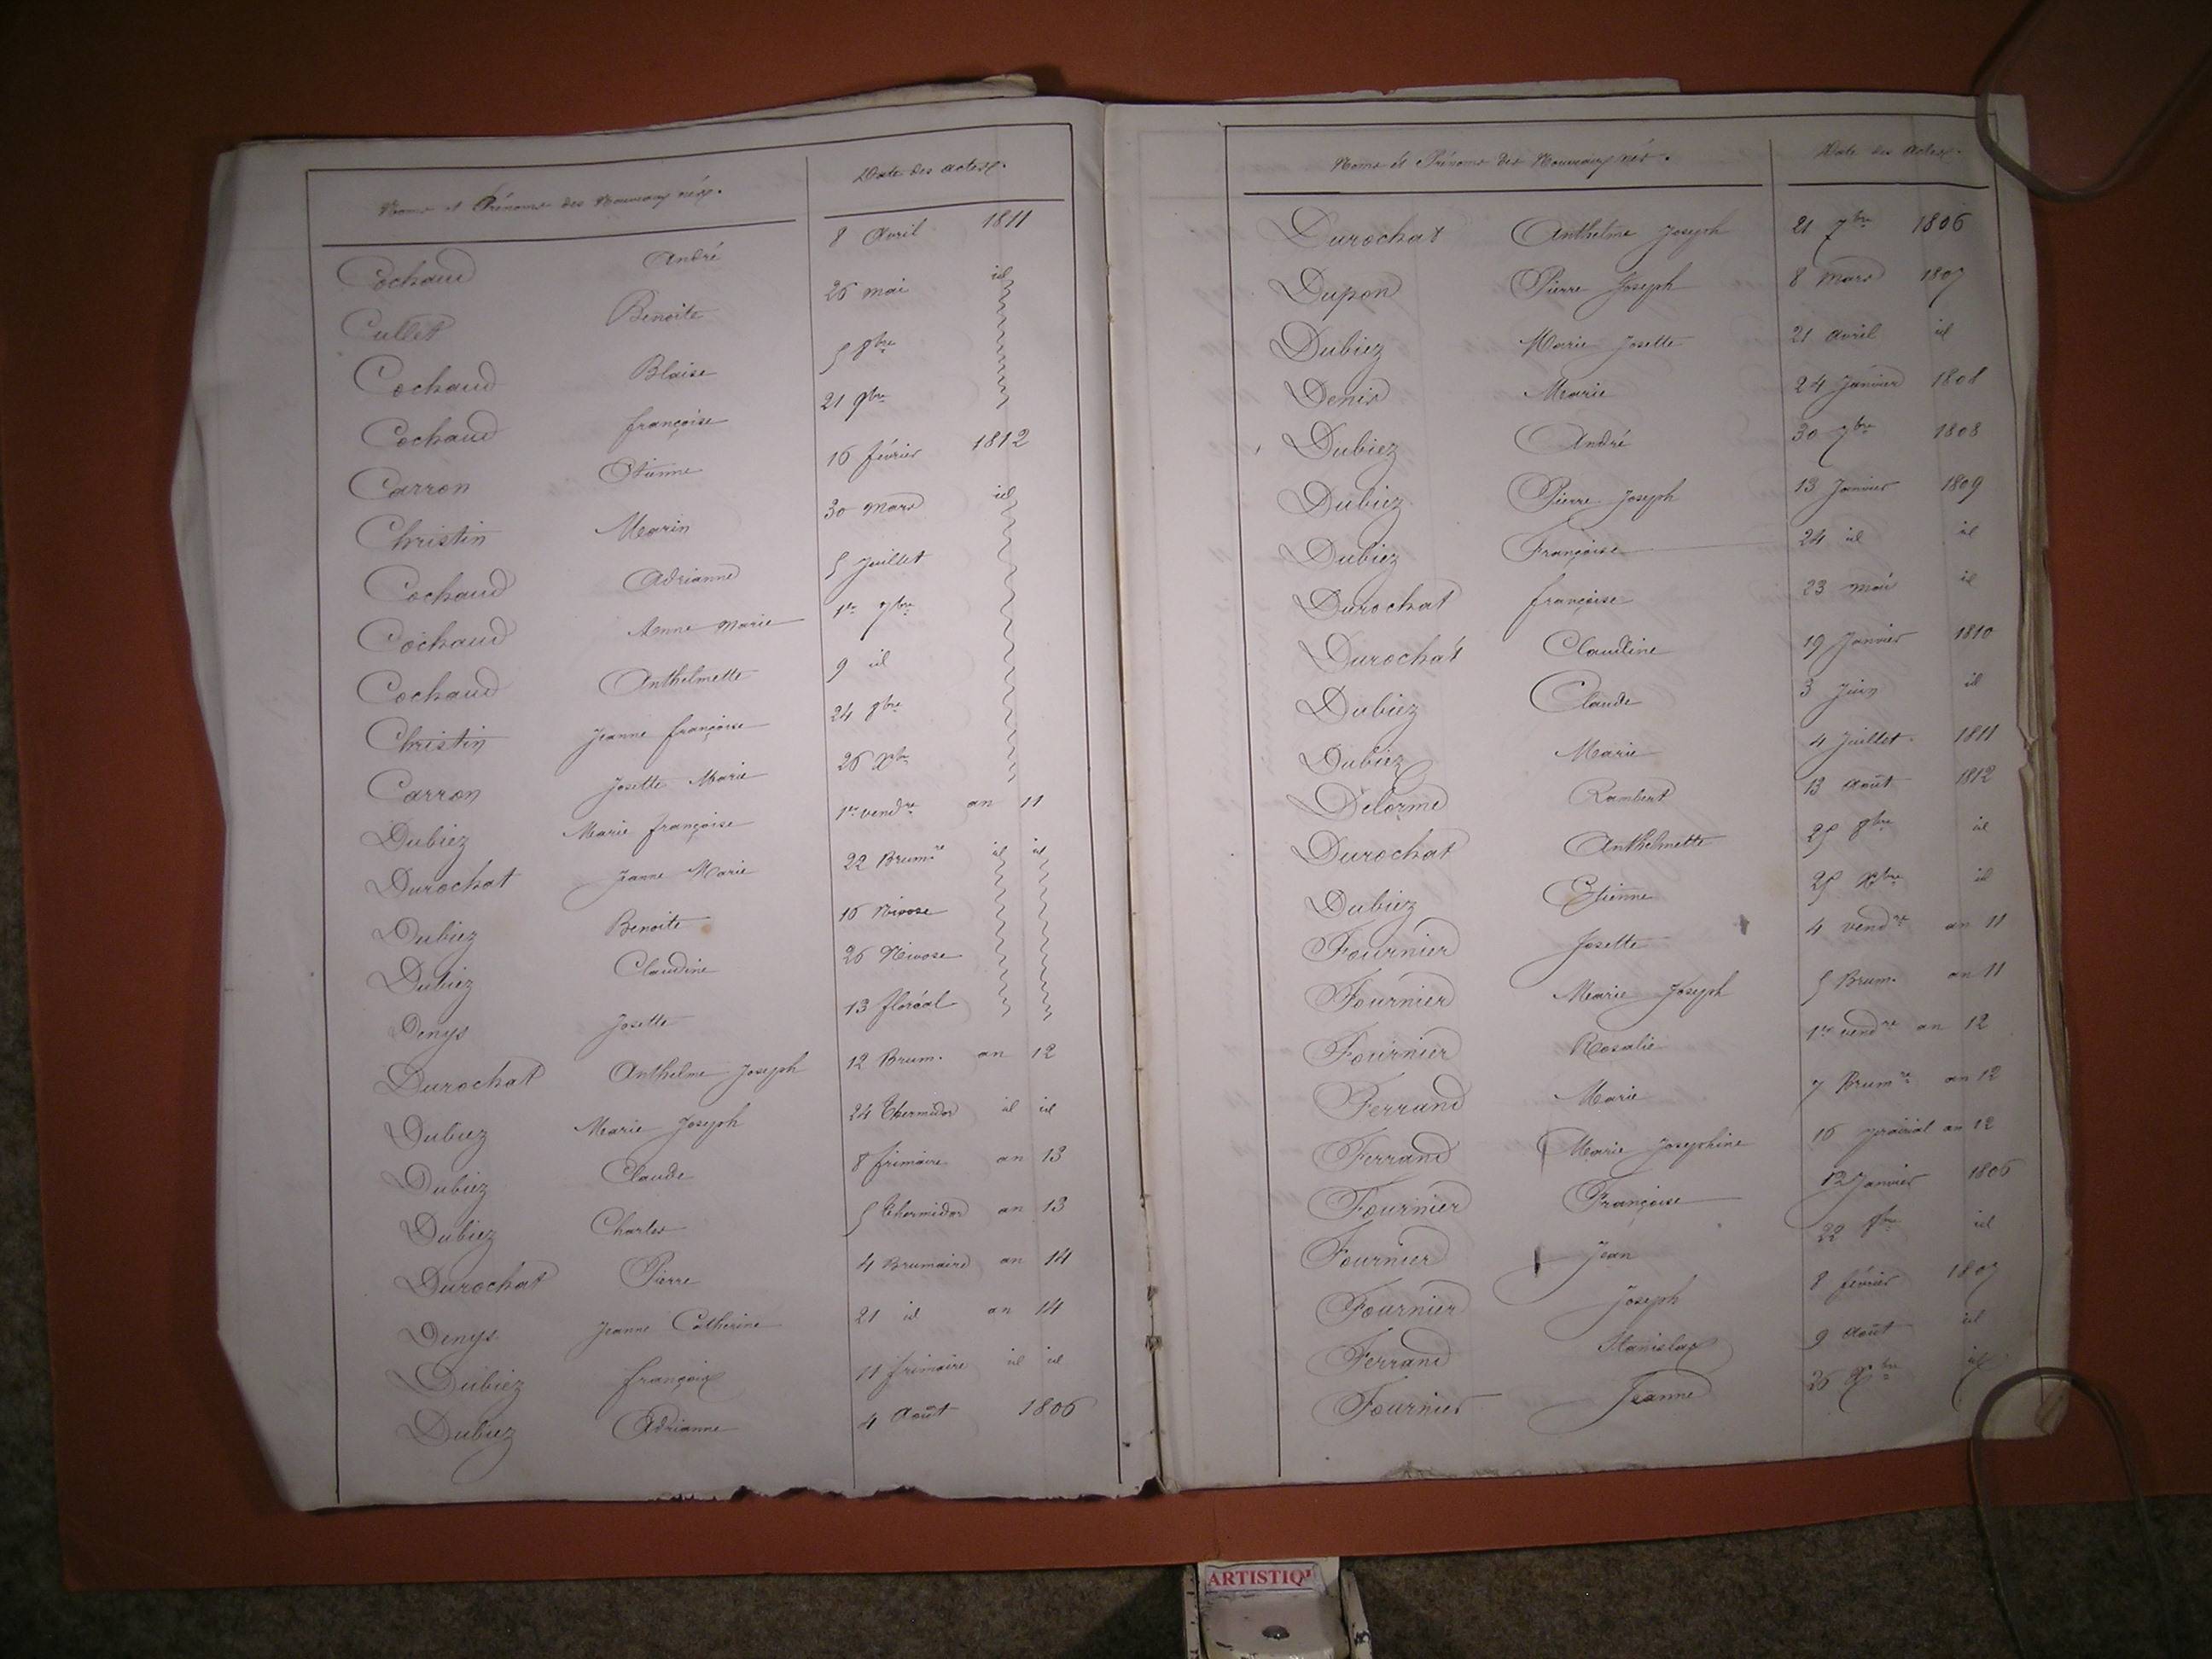 Noms et Prénoms des Nouveaux nés. Date des actes.
Cochaud André 8 Avril 1811
Cullet Benoite 26 mai id
Cochaud Blaise 5 8bre
Cochaud françoise 21 9bre
Carron Etienne 16 février 1812
Christin Marin 30 Mars id
Cochaud Adrianne 5 Juillet
Cochaud Anne Marie 1er 7bre
Cochaud Anthelmette 9 id
Christin Jeanne françoise 24 8bre
Carron Josette Marie 26 Xbre
Dubiez Marie françoise 1er vendre an 11
Durochat Jeanne Marie 22 Brumre id id
Dubiez Benoite 16 Nivose
Dubiez Claudine 26 Nivose
Denys Josette 13 floréal
Durochat Anthelme Joseph 12 Brum. an 12
Dubiez Marie Joseph 24 Thermidor id id
Dubiez Claude 8 frimaire an 13
Dubiez Charles 5 Thermidor an 13
Durochat Pierre 4 Brumaire an 14
Denys Jeanne Catherine 21 id an 14
Dubiez françois 11 frimaire id id
Dubiez Adrianne 4 Août 1806
Noms et Prénoms des Nouveaux nés. Date des actes.
Durochat Anthelme Joseph 21 7bre 1806
Dupon Pierre Joseph 8 Mars 1807
Dubiez Marie Josette 21 avril id
Denis Marie 24 Janvier 1808
Dubiez André 30 7bre 1808
Dubiez Pierre Joseph 13 Janvier 1809
Dubiez Françoise 24 id id
Durochat françoise 23 mai id
Durochat Claudine 19 Janvier 1810
Dubiez Claude 3 Juin id
Dubiez Marie 4 Juillet 1811
Delorme Rambert 13 Août 1812
Durochat Anthelmette 25 8bre id
Dubiez Etienne 25 Xbre id
Fournier Josette 4 vendre an 11
Fournier Marie Joseph 5 Brum. an 11
Fournier Rosalie 1er vendre an 12
Ferrand Marie 7 Brumre an 12
Ferrand Marie Josephine 16 prairial an 12
Fournier Françoise 12 Janvier 1806
Fournier Jean 22 8bre id
Fournier Joseph 8 février 1807
Ferrand Stanislas 9 Août id
Fournier Jeanne 26 Xbre id
ARTISTIQ